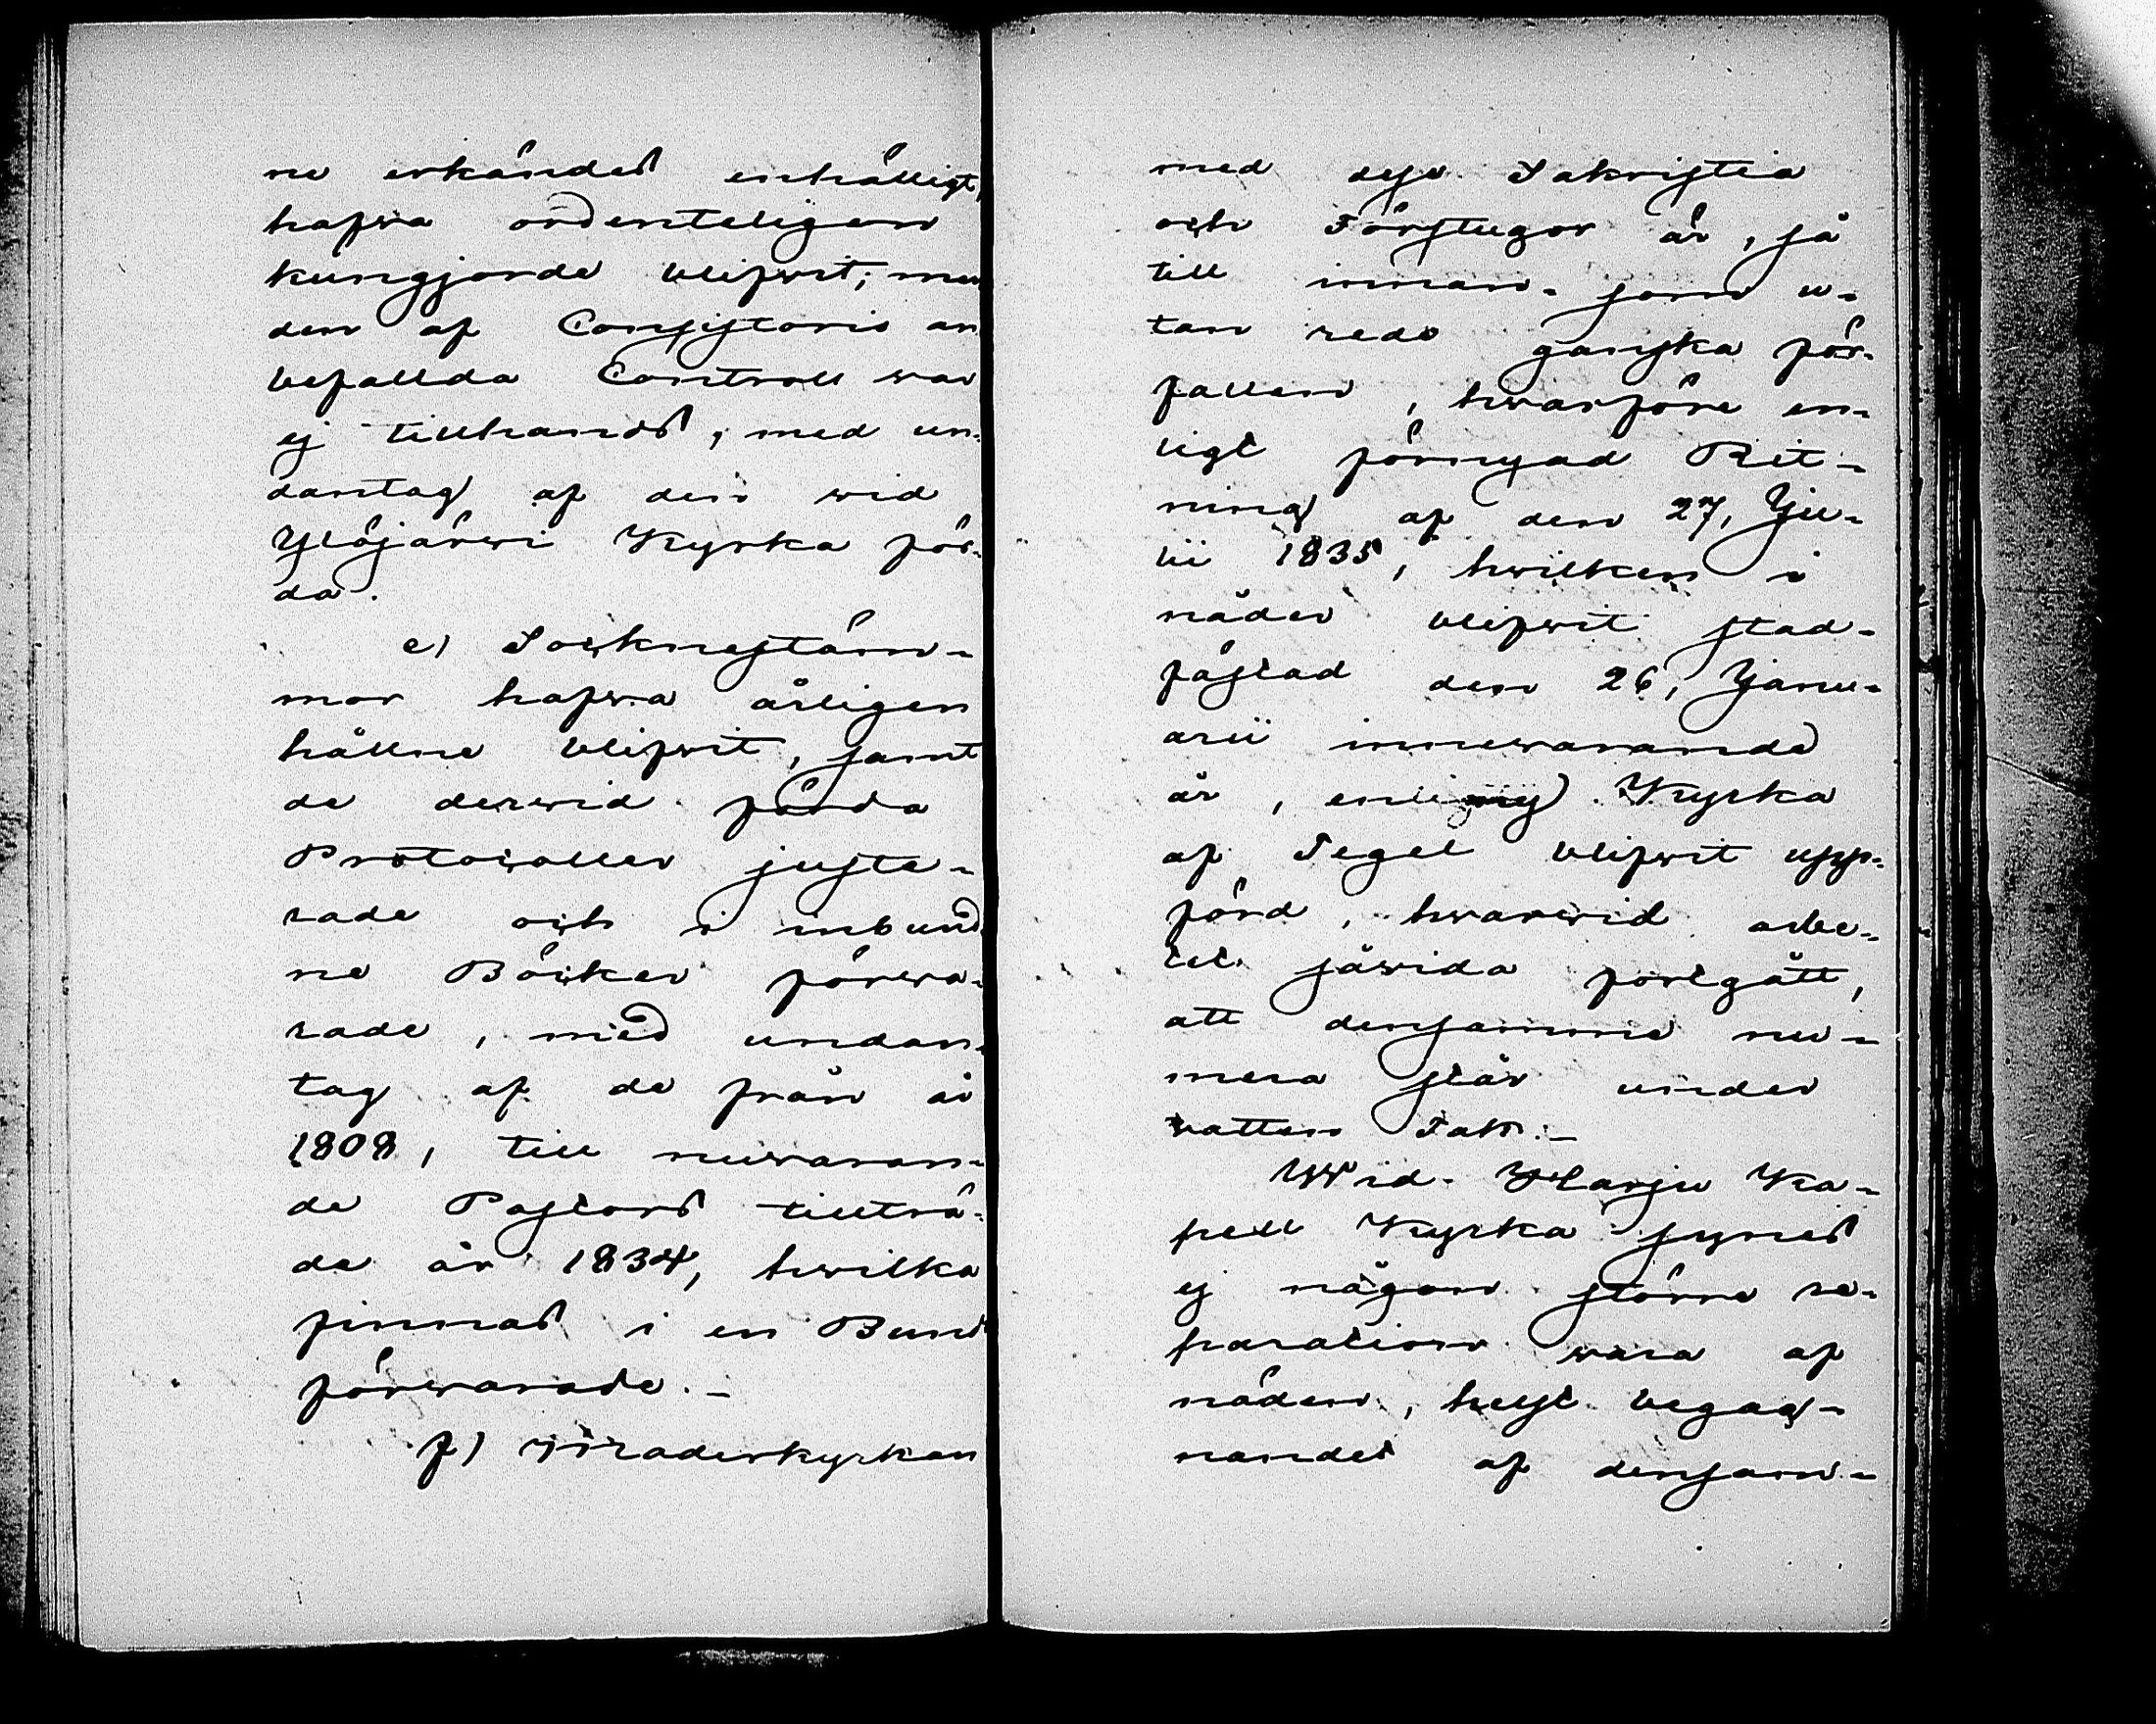 ne erkändes enhälligt,
hafva ordenteligen
kungjorde blifvit; men
den af Consistorio an
befallda Controll var
ej tillhands, med un-
dantag af den vid
Ylöjärvi Kyrka för-
da.
e) Socknestäm-
mor hafva årligen
hållne blifvit, samt
de dervid förda
Protocoller juste-
rade och i inbund
ne Böcker förva-
rade, med undan-
tag af de från år
1808, till nuvaran-
de Pastors tillträ-
de år 1834, hvilka
finnas i en Bunt
förvarade.-
f) Moderkyrkan
med dess Sakristia
och Förstugor är, så
till innan- som u-
tan rede ganska för-
fallen, hvarföre en-
ligt förnyad Rit-
ning af den 27, Ju-
lii 1835, hvilken i
nåder blifvit stad-
fästad den 26, Janu-
arii innevarande
år, en ny Kyrka
af Tegel blifvit upp-
förd, hvarvid arbe-
tet såvida fortgått,
att densamma nu-
mera står under
vatten Tak.-
Wid Harju Ka-
pell Kyrka synes
ej någon större re-
paration vara af
nöden, helst begag-
nandet af densam-